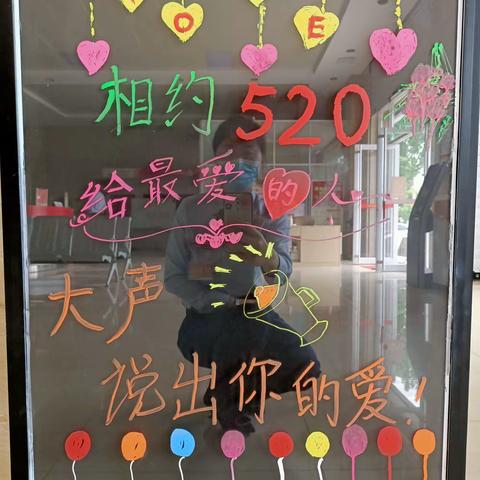 O E
相约520
给最爱的人
大声
说出你的爱!